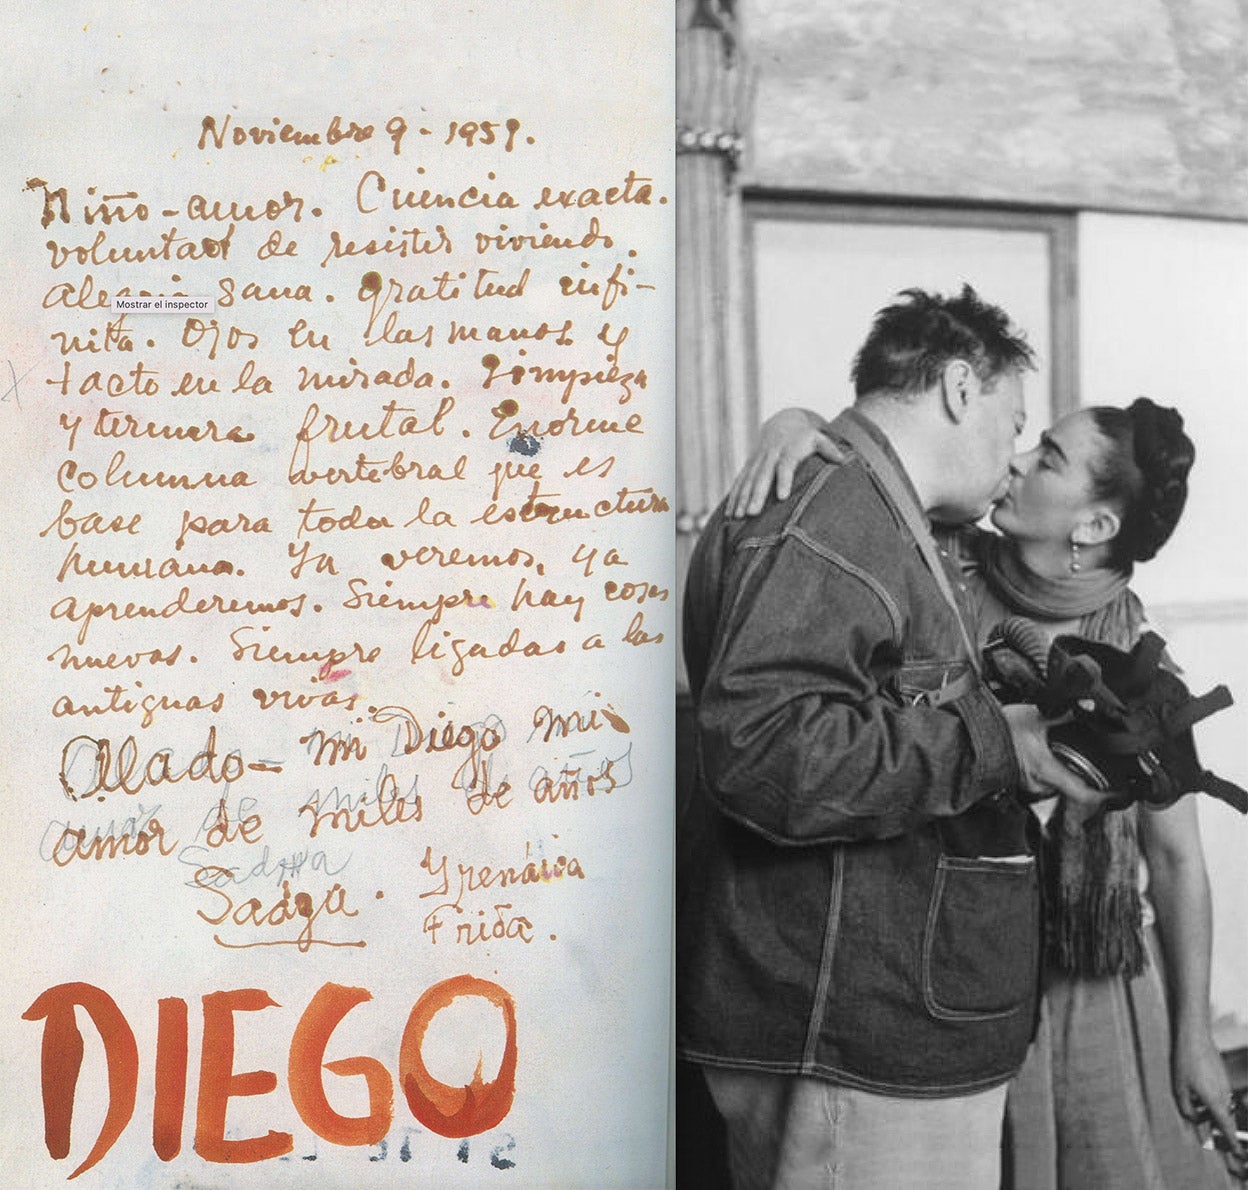 Noviembre 9 - 1951.
Niño-amor. Ciencia exacta.
voluntad de resistir viviendo.
alegria sana. gratitud infi-
Mostrar el inspector
nita. Ojos en las manos y
tacto en la mirada. Limpieza
y ternura frutal. Enorme
columna vertebral que es
base para toda la estructura
humana. Ya veremos, ya
aprenderemos. Siempre hay cosas
nuevas. Siempre ligadas a las
antiguas vivas.
Alado - mi Diego mi
amor de miles de años
Sadga. Yrenáica
Frida.
DIEGO